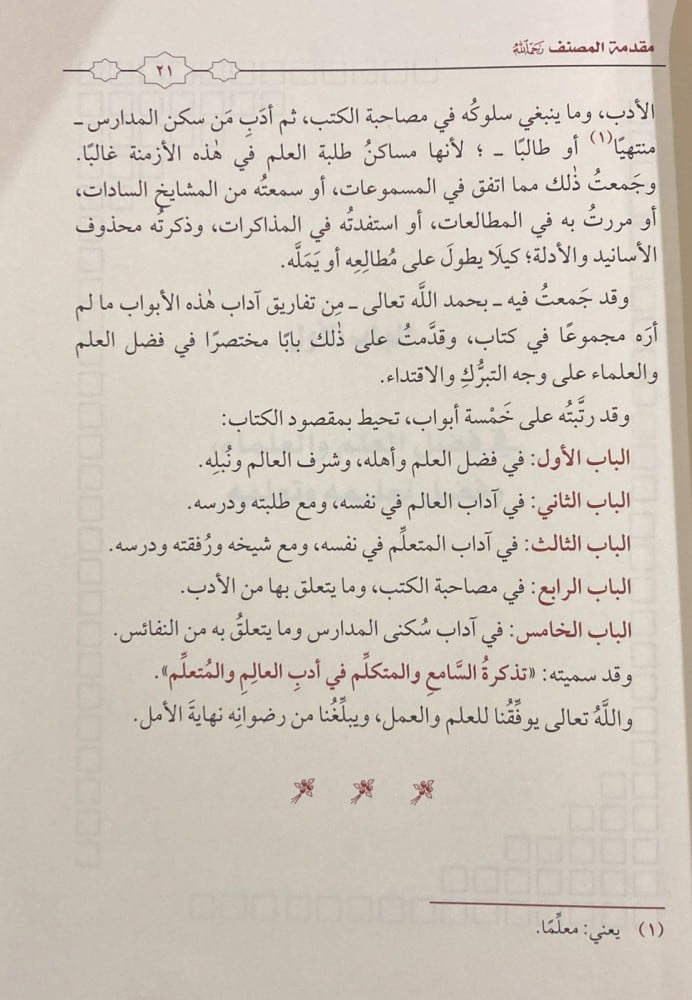 مقدمة المصنف رَحِمَهُ اللَّهُ
٢١
الأدب، وما ينبغي سلوكُه في مصاحبة الكتب، ثم أدَبِ مَن سكن المدارس ـ
منتهيًا(١) أو طالبًا ـ ؛ لأنها مساكنُ طلبة العلم في هٰذه الأزمنة غالبًا.
وجَمعتُ ذٰلك مما اتفق في المسموعات، أو سمعتُه من المشايخ السادات،
أو مررتُ به في المطالعات، أو استفدتُه في المذاكرات، وذكرتُه محذوف
الأسانيد والأدلة؛ كيلَا يطولَ على مُطالِعِه أو يَمَلَّه.
وقد جَمعتُ فيه ـ بحمد اللَّه تعالى ـ مِن تفاريق آداب هٰذه الأبواب ما لم
أرَه مجموعًا في كتاب، وقدَّمتُ على ذٰلك بابًا مختصرًا في فضل العلم
والعلماء على وجه التبرُّكِ والاقتداء.
وقد رتَّبتُه على خَمْسة أبواب، تحيط بمقصود الكتاب:
الباب الأول: في فضل العلم وأهله، وشرف العالم ونُبلِه.
الباب الثاني: في آداب العالم في نفسه، ومع طلبته ودرسه.
الباب الثالث: في آداب المتعلِّم في نفسه، ومع شيخه ورُفقته ودرسه.
الباب الرابع: في مصاحبة الكتب، وما يتعلق بها من الأدب.
الباب الخامس: في آداب سُكنى المدارس وما يتعلقُ به من النفائس.
وقد سميته: «تذكرةُ السَّامعِ والمتكلِّم في أدبِ العالِمِ والمُتعلِّم».
واللَّهُ تعالى يوفِّقُنا للعلم والعمل، ويبلِّغُنا من رضوانِه نهايةَ الأمل.
(١) يعني: معلِّمًا.